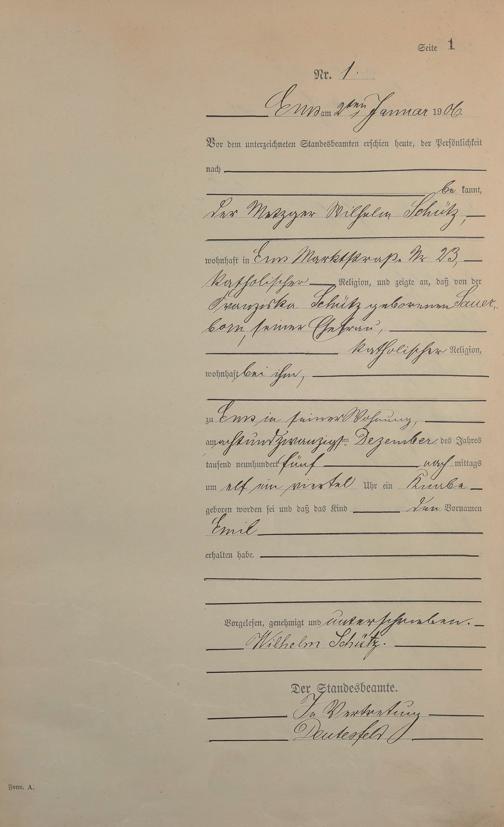 Seite 1
Nr. 1.
Ems am 2ten Januar 1906
Vor dem unterzeichneten Standesbeamten erschien heute, der Persönlichkeit
nach
be kannt,
der Metzger Wilhelm Schütz,
wohnhaft in Ems Marktstraße Nr 23,
katholischer Religion, und zeigte an, daß von der
Franziska Schütz geborenen Sauer,
born, seiner Ehefrau,
katholischer Religion,
wohnhaft bei ihm,
zu Ems in seiner Wohnung,
am achtundzwanzigst Dezember des Jahres
tausend neunhundert fünf nach mittags
um elf ein viertel Uhr ein Knabe
geboren worden sei und daß das Kind den Vornamen
Emil
erhalten habe.
Vorgelesen, genehmigt und unterschrieben.
Wilhelm Schütz.
Der Standesbeamte.
In Vertretung
Form. A.